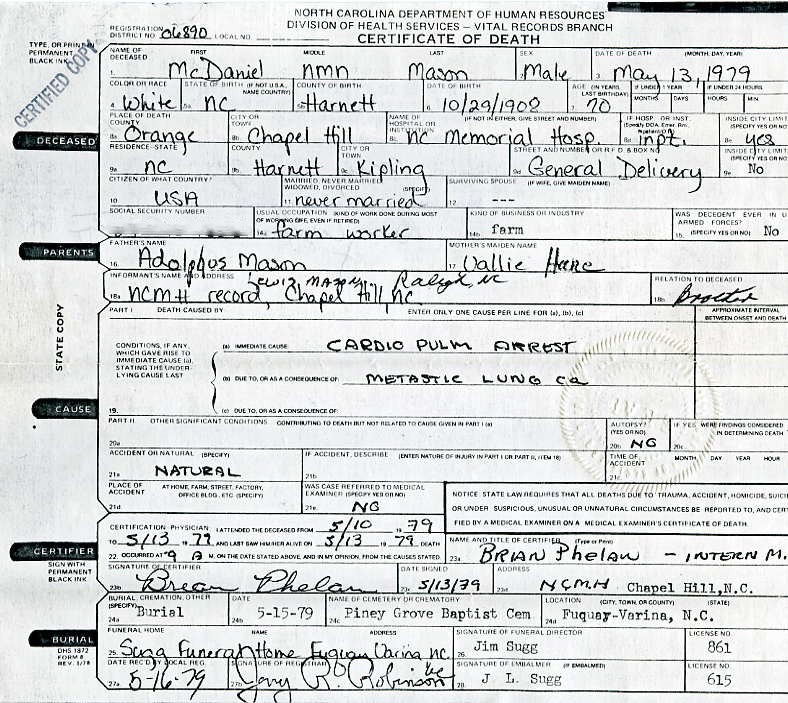 NORTH CAROLINA DEPARTMENT OF HUMAN RESOURCES
DIVISION OF HEALTH SERVICES — VITAL RECORDS BRANCH
CERTIFICATE OF DEATH
REGISTRATION DISTRICT NO. 06890 LOCAL NO.
TYPE, OR PRINT IN PERMANENT BLACK INK
CERTIFIED COPY
NAME OF DECEASED FIRST MIDDLE LAST SEX DATE OF DEATH (MONTH, DAY, YEAR)
1. McDaniel nmn Mason 2. Male 3. May 13, 1979
COLOR OR RACE STATE OF BIRTH (IF NOT U.S.A., NAME COUNTRY) COUNTY OF BIRTH DATE OF BIRTH AGE (IN YEARS LAST BIRTHDAY) IF UNDER 1 YEAR IF UNDER 24 HOURS
MONTHS DAYS HOURS MIN.
4. White 5a. NC 5b. Harnett 6. 10/29/1908 7. 70
PLACE OF DEATH COUNTY CITY OR TOWN NAME OF HOSPITAL OR INSTITUTION (IF NOT IN EITHER, GIVE STREET AND NUMBER) IF HOSP. OR INST. INSIDE CITY LIMIT
(SPECIFY YES OR NO)
DECEASED
8a. Orange 8b. Chapel Hill 8c. NC Memorial Hosp. 8d. inpt. 8e. yes
RESIDENCE—STATE COUNTY CITY OR TOWN STREET AND NUMBER OR R.F.D. & BOX NO. INSIDE CITY LIMIT
(SPECIFY YES OR NO)
9a. NC 9b. Harnett 9c. Kipling 9d. General Delivery 9e. No
CITIZEN OF WHAT COUNTRY? MARRIED, NEVER MARRIED, WIDOWED, DIVORCED (SPECIFY) SURVIVING SPOUSE (IF WIFE, GIVE MAIDEN NAME)
10. USA 11. never married 12. ---
SOCIAL SECURITY NUMBER USUAL OCCUPATION (KIND OF WORK DONE DURING MOST OF WORKING LIFE, EVEN IF RETIRED) KIND OF BUSINESS OR INDUSTRY WAS DECEDENT EVER IN U ARMED FORCES? (SPECIFY YES OR NO)
14a. farm worker 14b. farm 15. No
PARENTS
FATHER'S NAME MOTHER'S MAIDEN NAME
16. Adolphus Mason 17. Vallie Hare
INFORMANT'S NAME AND ADDRESS Lewis Mason, Raleigh NC RELATION TO DECEASED
18a. NCMH record, Chapel Hill, NC 18b. Brother
STATE COPY
PART I DEATH CAUSED BY ENTER ONLY ONE CAUSE PER LINE FOR (a), (b), (c) APPROXIMATE INTERVAL BETWEEN ONSET AND DEATH
CONDITIONS, IF ANY, WHICH GAVE RISE TO IMMEDIATE CAUSE (a), STATING THE UNDERLYING CAUSE LAST
(a) IMMEDIATE CAUSE: CARDIO PULM ARREST
(b) DUE TO, OR AS A CONSEQUENCE OF: METASTIC LUNG Ca
CAUSE
19. (c) DUE TO, OR AS A CONSEQUENCE OF:
PART II. OTHER SIGNIFICANT CONDITIONS CONTRIBUTING TO DEATH BUT NOT RELATED TO CAUSE GIVEN IN PART I (a) AUTOPSY? (YES OR NO) IF YES WERE FINDINGS CONSIDERED IN DETERMINING DEATH
20a. 20b. NO 20c.
ACCIDENT OR NATURAL (SPECIFY) IF ACCIDENT, DESCRIBE (ENTER NATURE OF INJURY IN PART I OR PART II, ITEM 18) TIME OF ACCIDENT MONTH DAY YEAR HOUR
21a. NATURAL 21b. 21c.
PLACE OF ACCIDENT AT HOME, FARM, STREET, FACTORY, OFFICE BLDG., ETC (SPECIFY) WAS CASE REFERRED TO MEDICAL EXAMINER (SPECIFY YES OR NO)
21d. 21e. NO
NOTICE: STATE LAW REQUIRES THAT ALL DEATHS DUE TO TRAUMA, ACCIDENT, HOMICIDE, SUICI
OR UNDER SUSPICIOUS, UNUSUAL OR UNNATURAL CIRCUMSTANCES BE REPORTED TO, AND CERT
FIED BY A MEDICAL EXAMINER ON A MEDICAL EXAMINER'S CERTIFICATE OF DEATH.
CERTIFICATION—PHYSICIAN I ATTENDED THE DECEASED FROM 5/10 19 79
TO 5/13 19 79 AND LAST SAW HIM/HER ALIVE ON 5/13 19 79. DEATH
22. OCCURRED AT 9 A M. ON THE DATE STATED ABOVE AND IN MY OPINION, FROM THE CAUSES STATED.
NAME AND TITLE OF CERTIFIER (Type or Print)
23a. BRIAN Phelan — INTERN M.
CERTIFIER
SIGN WITH PERMANENT BLACK INK
SIGNATURE OF CERTIFIER DATE SIGNED ADDRESS
23b. Brian Phelan 23c. 5/13/79 23d. NCMH Chapel Hill, N.C.
BURIAL, CREMATION, OTHER (SPECIFY) DATE NAME OF CEMETERY OR CREMATORY LOCATION (CITY, TOWN, OR COUNTY) (STATE)
24a. Burial 24b. 5-15-79 24c. Piney Grove Baptist Cem 24d. Fuquay-Varina, N.C.
BURIAL
DHS 1872
FORM 8
REV. 1/78
FUNERAL HOME NAME ADDRESS SIGNATURE OF FUNERAL DIRECTOR LICENSE NO.
25. Sugg Funeral Home Fuquay Varina NC 26. Jim Sugg 861
DATE REC'D BY LOCAL REG. SIGNATURE OF REGISTRAR SIGNATURE OF EMBALMER (IF EMBALMED) LICENSE NO.
27a. 5-16-79 27b. Robinson 28. J. L. Sugg 615